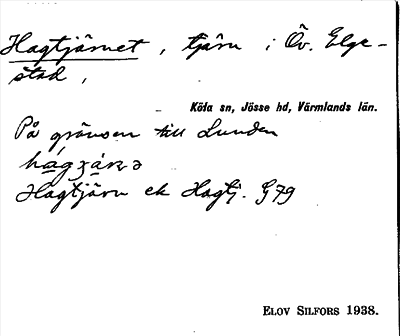 Hagtjärnet, tjärn i Öv. Elge-
stad,
Köla sn, Jösse hd, Värmlands län.
På gränsen till Lunden
Hagtjärn ek Hagtj. G79
ELOV SILFORS 1938.